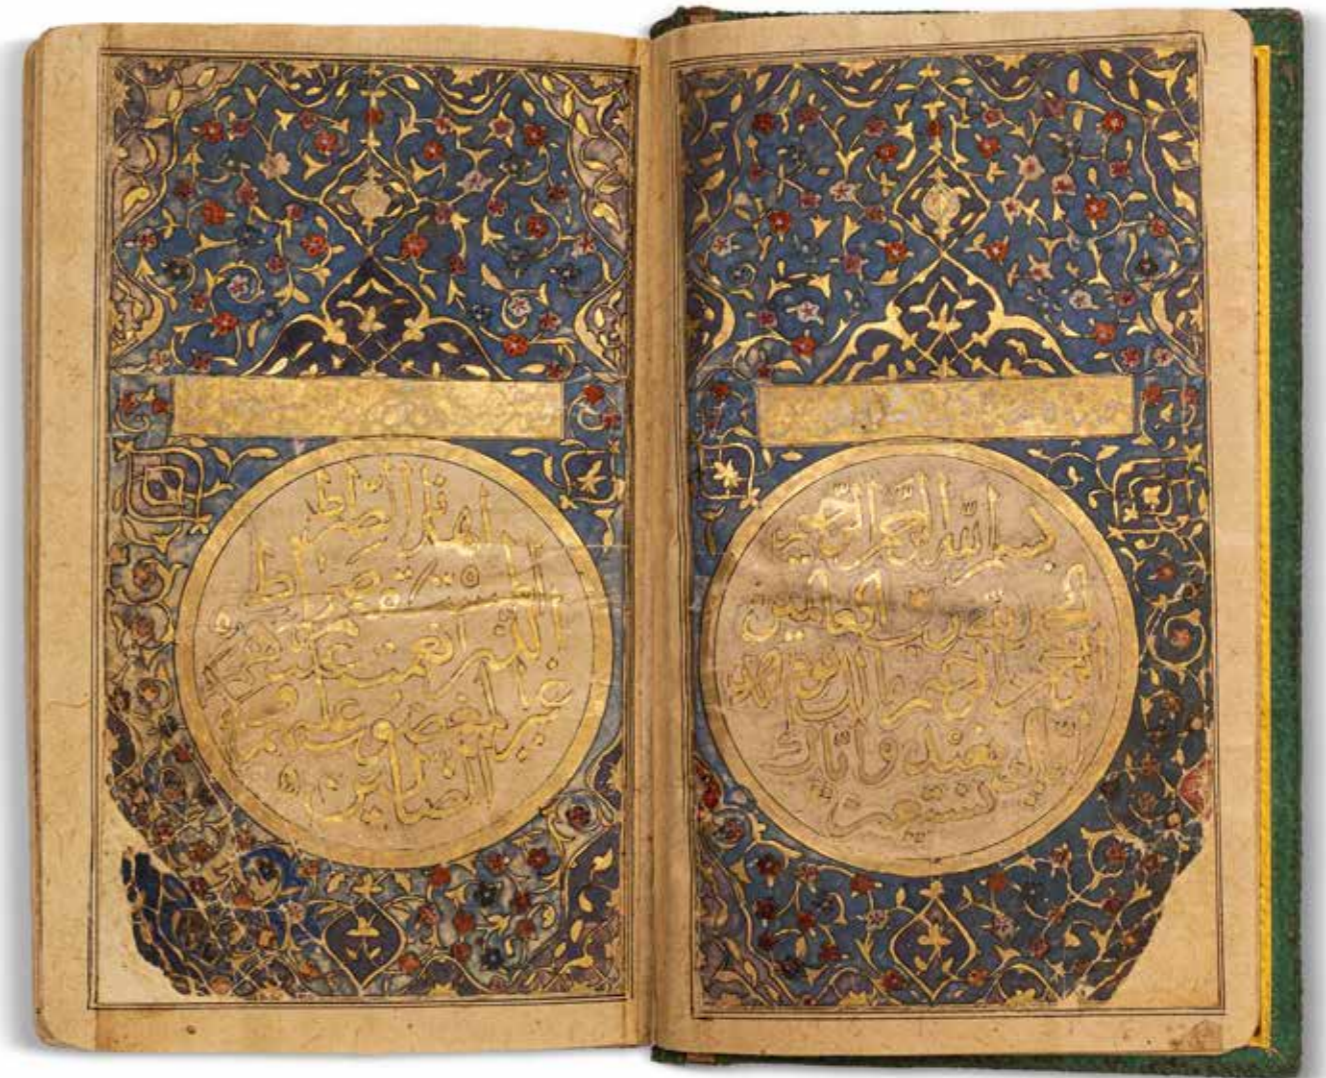 بسم الله الرحمن الرحيم
الحمد لله رب العالمين
الرحمن الرحيم مالك يوم
الدين اياك نعبد واياك
نستعين
اهدنا الصراط
المستقيم صراط
الذين انعمت عليهم
غير المغضوب عليهم ولا
الضالين